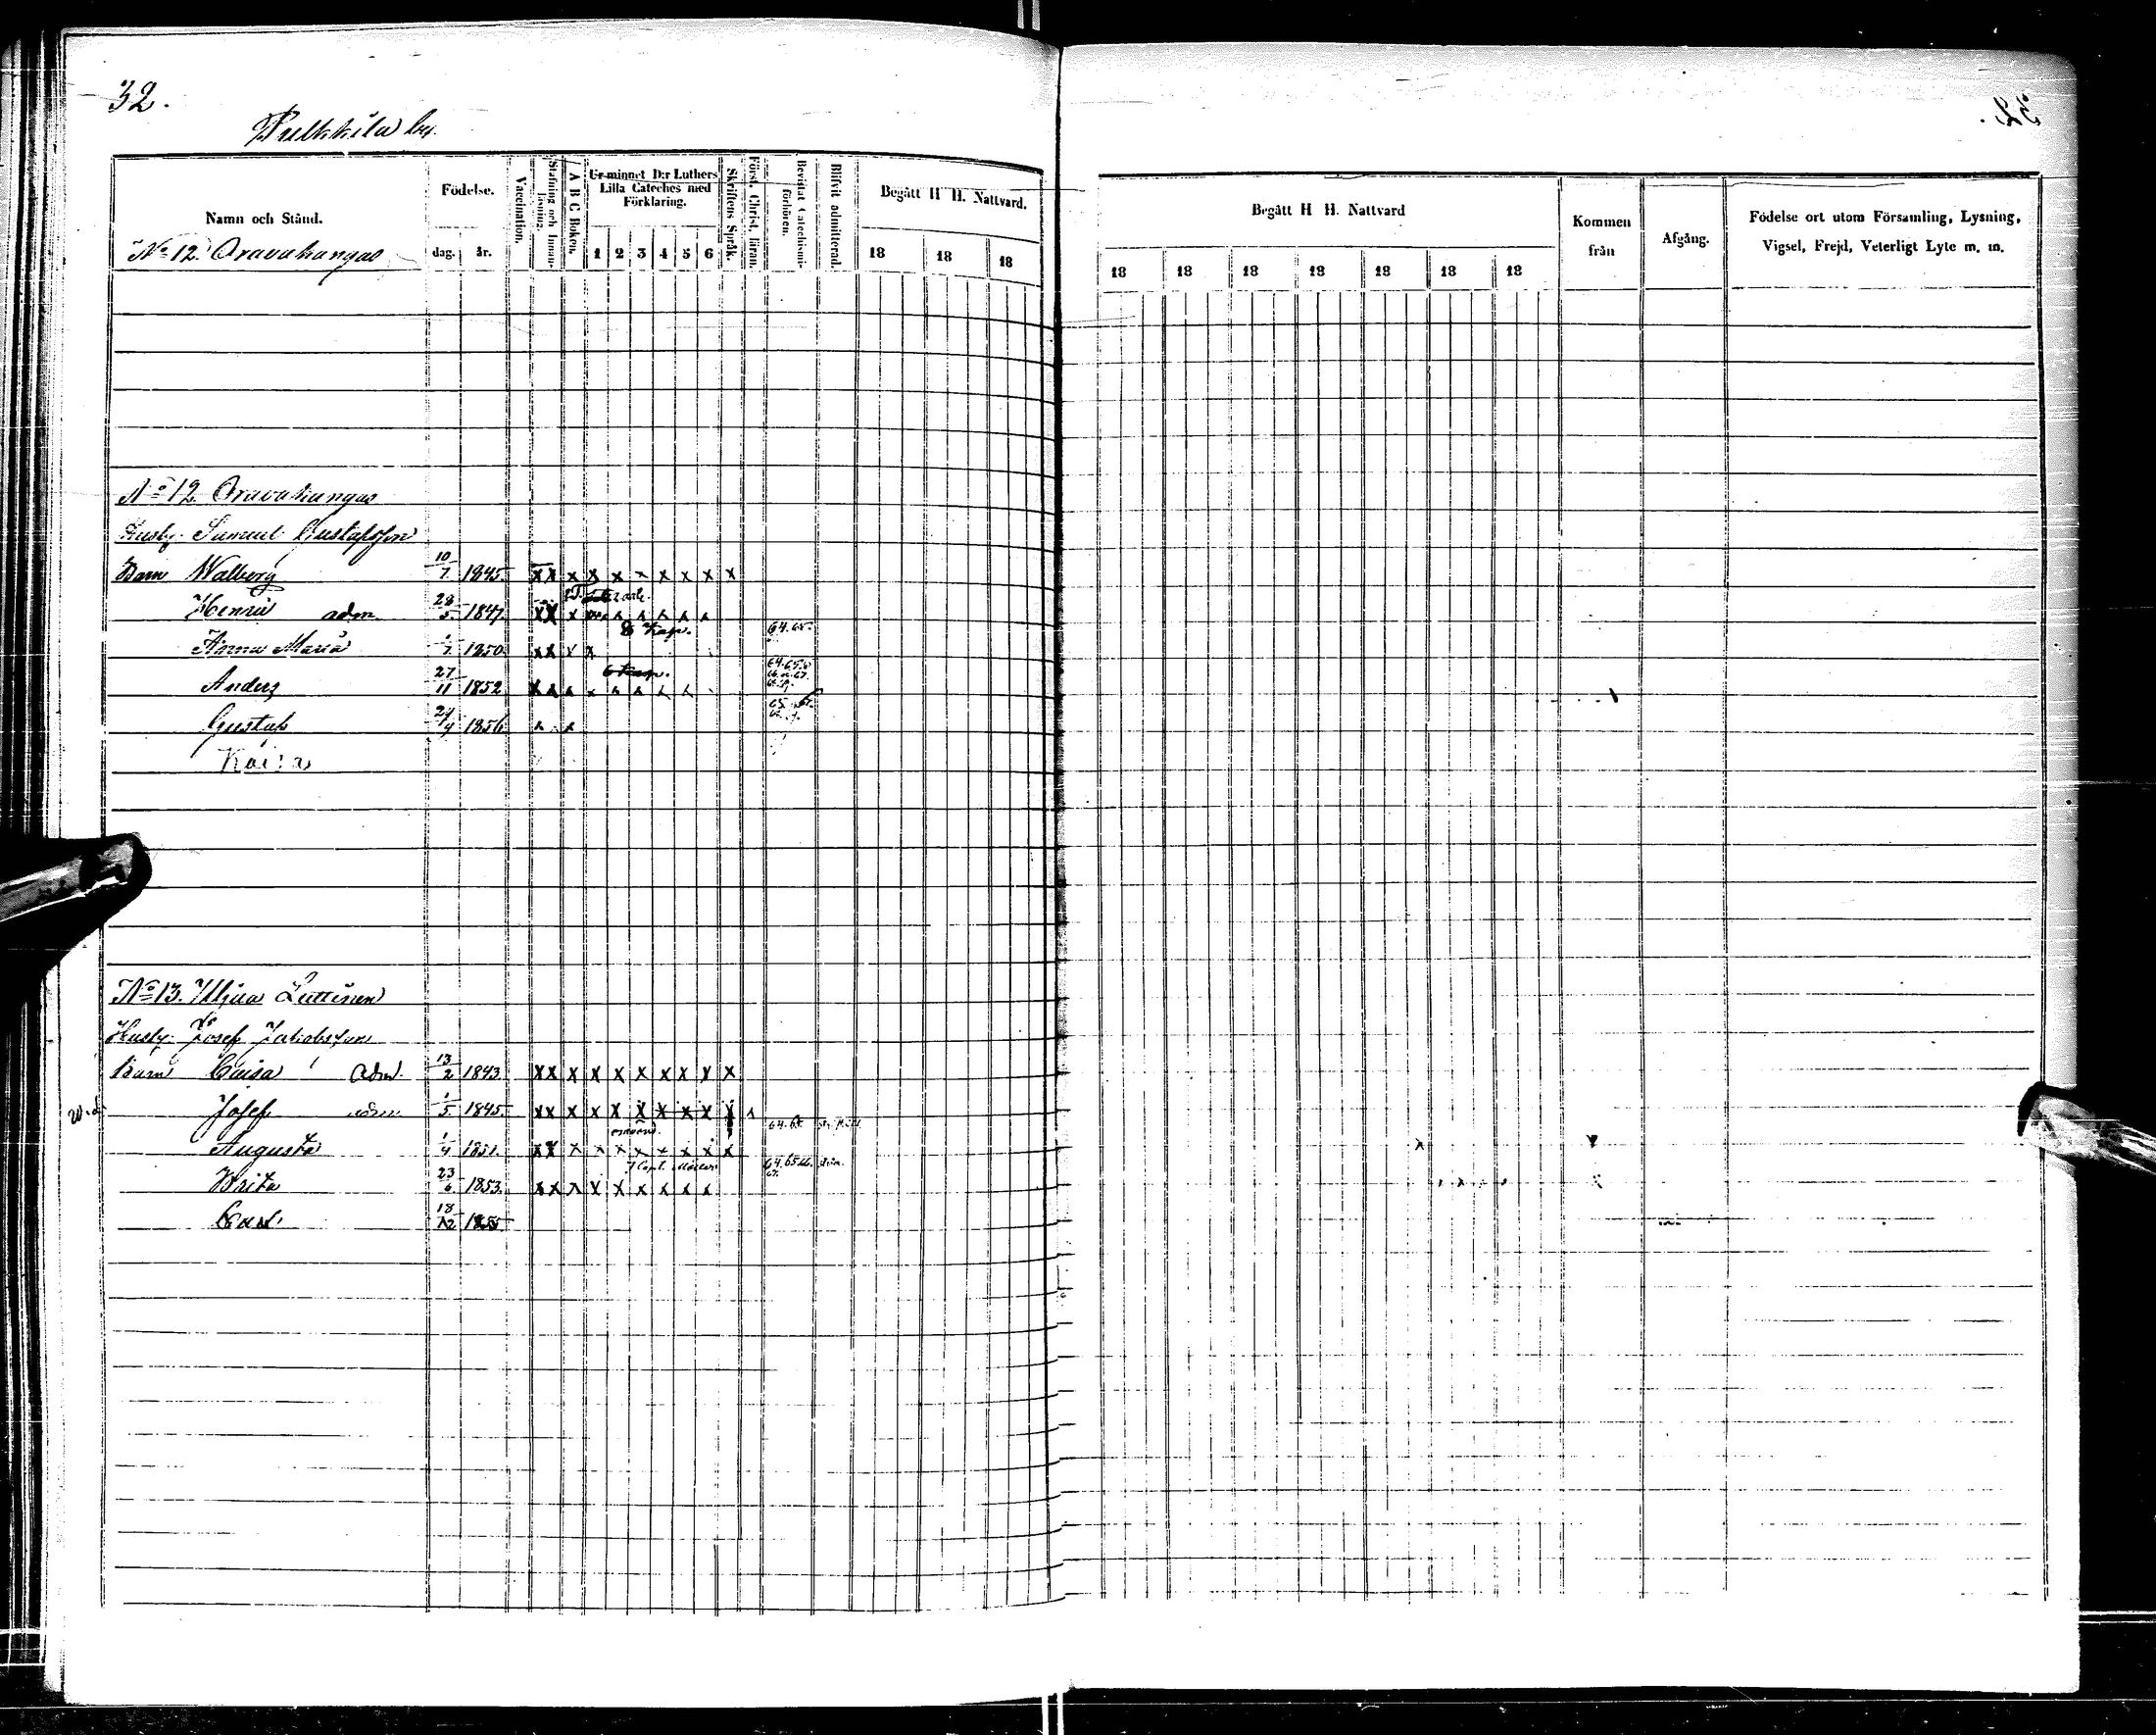 32.
Pulkkila by.
Namn och Stånd.
Födelse.
dag. år.
Vaccination.
Stafning och Innanläsning.
A B C Boken.
Ur minnet D:r Luthers Lilla Cateches med Förklaring.
1 2 3 4 5 6
Skriftens Språk.
Först. Christ. läran.
Bevistat Catechismiförhören.
Blifvit admitterad.
Begått H H. Nattvard.
18 18 18
Begått H H. Nattvard
18 18 18 18 18 18 18
Kommen från
Afgång.
Födelse ort utom Församling, Lysning, Vigsel, Frejd, Veterligt Lyte m. m.
No 12. Oravakangas
No 12 Oravakangas
Husb. Samuel Gustafsson
Barn Walborg 10/7 1845 x x x x x x x x x x
Henric adm. 28/5 1847
8 kap. 64.65.
Anna Maria 1/7 1850 x x x x
6 kap.
Anders 27/11 1852
Gustaf 24/9 1856
Kaisa
No 13. Uljua Luttinen
Husb. Josef Jakobsson
Barn Caisa Adm. 13/2 1843 x x x x x x x x x x
Josef adm. 1/5 1845 x x x x x x x x x x
Augusta 1/4 1851 x x x x x x x x x x
Brita 23/6 1853 x x x x x x x x x
Carl 18/12 1855